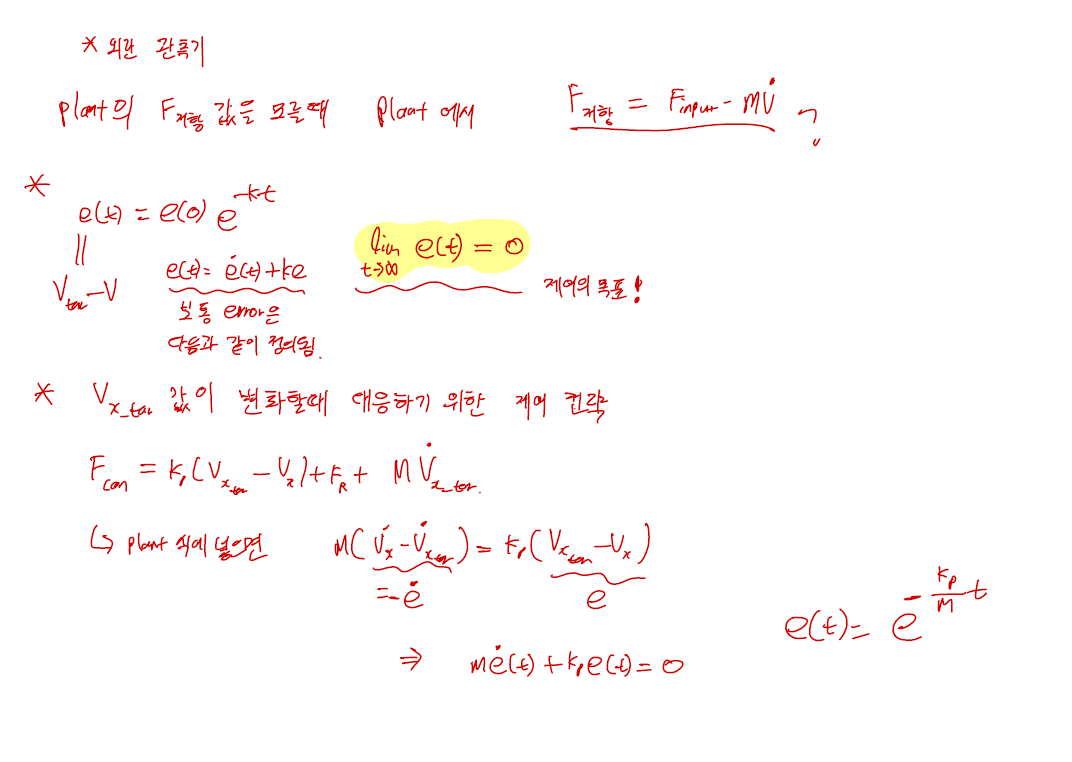 * 외란 관측기
plant의 F저항 값을 모를때 plant 에서 F저항 = Finput - mV̇ ?
*
e(t) = e(0) e^-kt
||
Vtar - V
e(t) = ė(t) + ke
보통 error은
다음과 같이 정의됨.
lim t→∞ e(t) = 0
제어의 목표!
* Vx_tar 값이 변화할때 대응하기 위한 제어 전략
Fcon = Kp(Vxtar - Vx) + FR + M V̇x_tar.
↳ plant 식에 넣으면 M(V̇x - V̇xtar) = Kp(Vxtar - Vx)
= -ė e
e(t) = e^-(Kp/M)t
⇒ mė(t) + Kpe(t) = 0